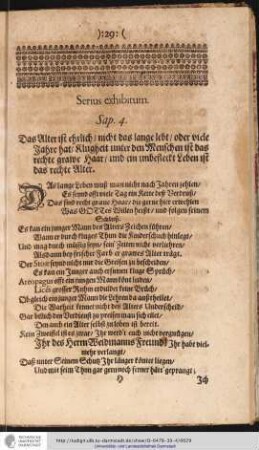 ):29:(
Serius exhibitum.
Sap. 4.
Das Alter ist ehrlich/ nicht das lange lebt/ oder viele
Jahre hat/ Klugheit unter den Menschen ist das
rechte grawe Haar/ und ein unbefleckt Leben ist
das rechte Alter.
DAs lange Leben muß man nicht nach Jahren zehlen/
Es seynd offt viele Tag ein Kette deß Verdruß/
Das sind recht graue Haar/ die gerne hier erwehlen
Was GOTTes Willen heißt/ und folgen seinem
Schluß.
Es kan ein junger Mann deß Alters Zeichen führen/
Wann er durch kluges Thun die Kinderschuh hinlegt/
Und mag durch müssig seyn/ sein' Zeiten nicht verliehren/
Als dann deß greisen Farb er grames Alter trägt.
Der seynd nicht nur die Greisen zu bescheiden/
Es kan ein Junger auch ersinnen kluge Sprüch/
Areopagus offt ein jungen Mann kont leiden/
Licht grosser Ruhm
Ob gleich ein junger Mann die Jahren da ausserhellet/
Die Warheit kennet nicht deß Alters Unterscheid/
Gar löblich den Verdienst zu preisen man sich eilet/
Den auch ein Alter selbst zu loben ist bereit.
Kein Zweiffel ist es zwar/ Ihr werd't euch nicht vergnügen/
Ihr des Herrn Weidmanns Freund/ Ihr habt viel-
mehr verlangt/
Daß unter seinem Schutz Ihr länger könnet liegen/
Und mit sein Thun gar gern noch ferner hätt geprangt;
D
Ich
http://tudigit.ulb.tu-darmstadt.de/show/
Universitäts- und Landesbibliothek Darmstadt